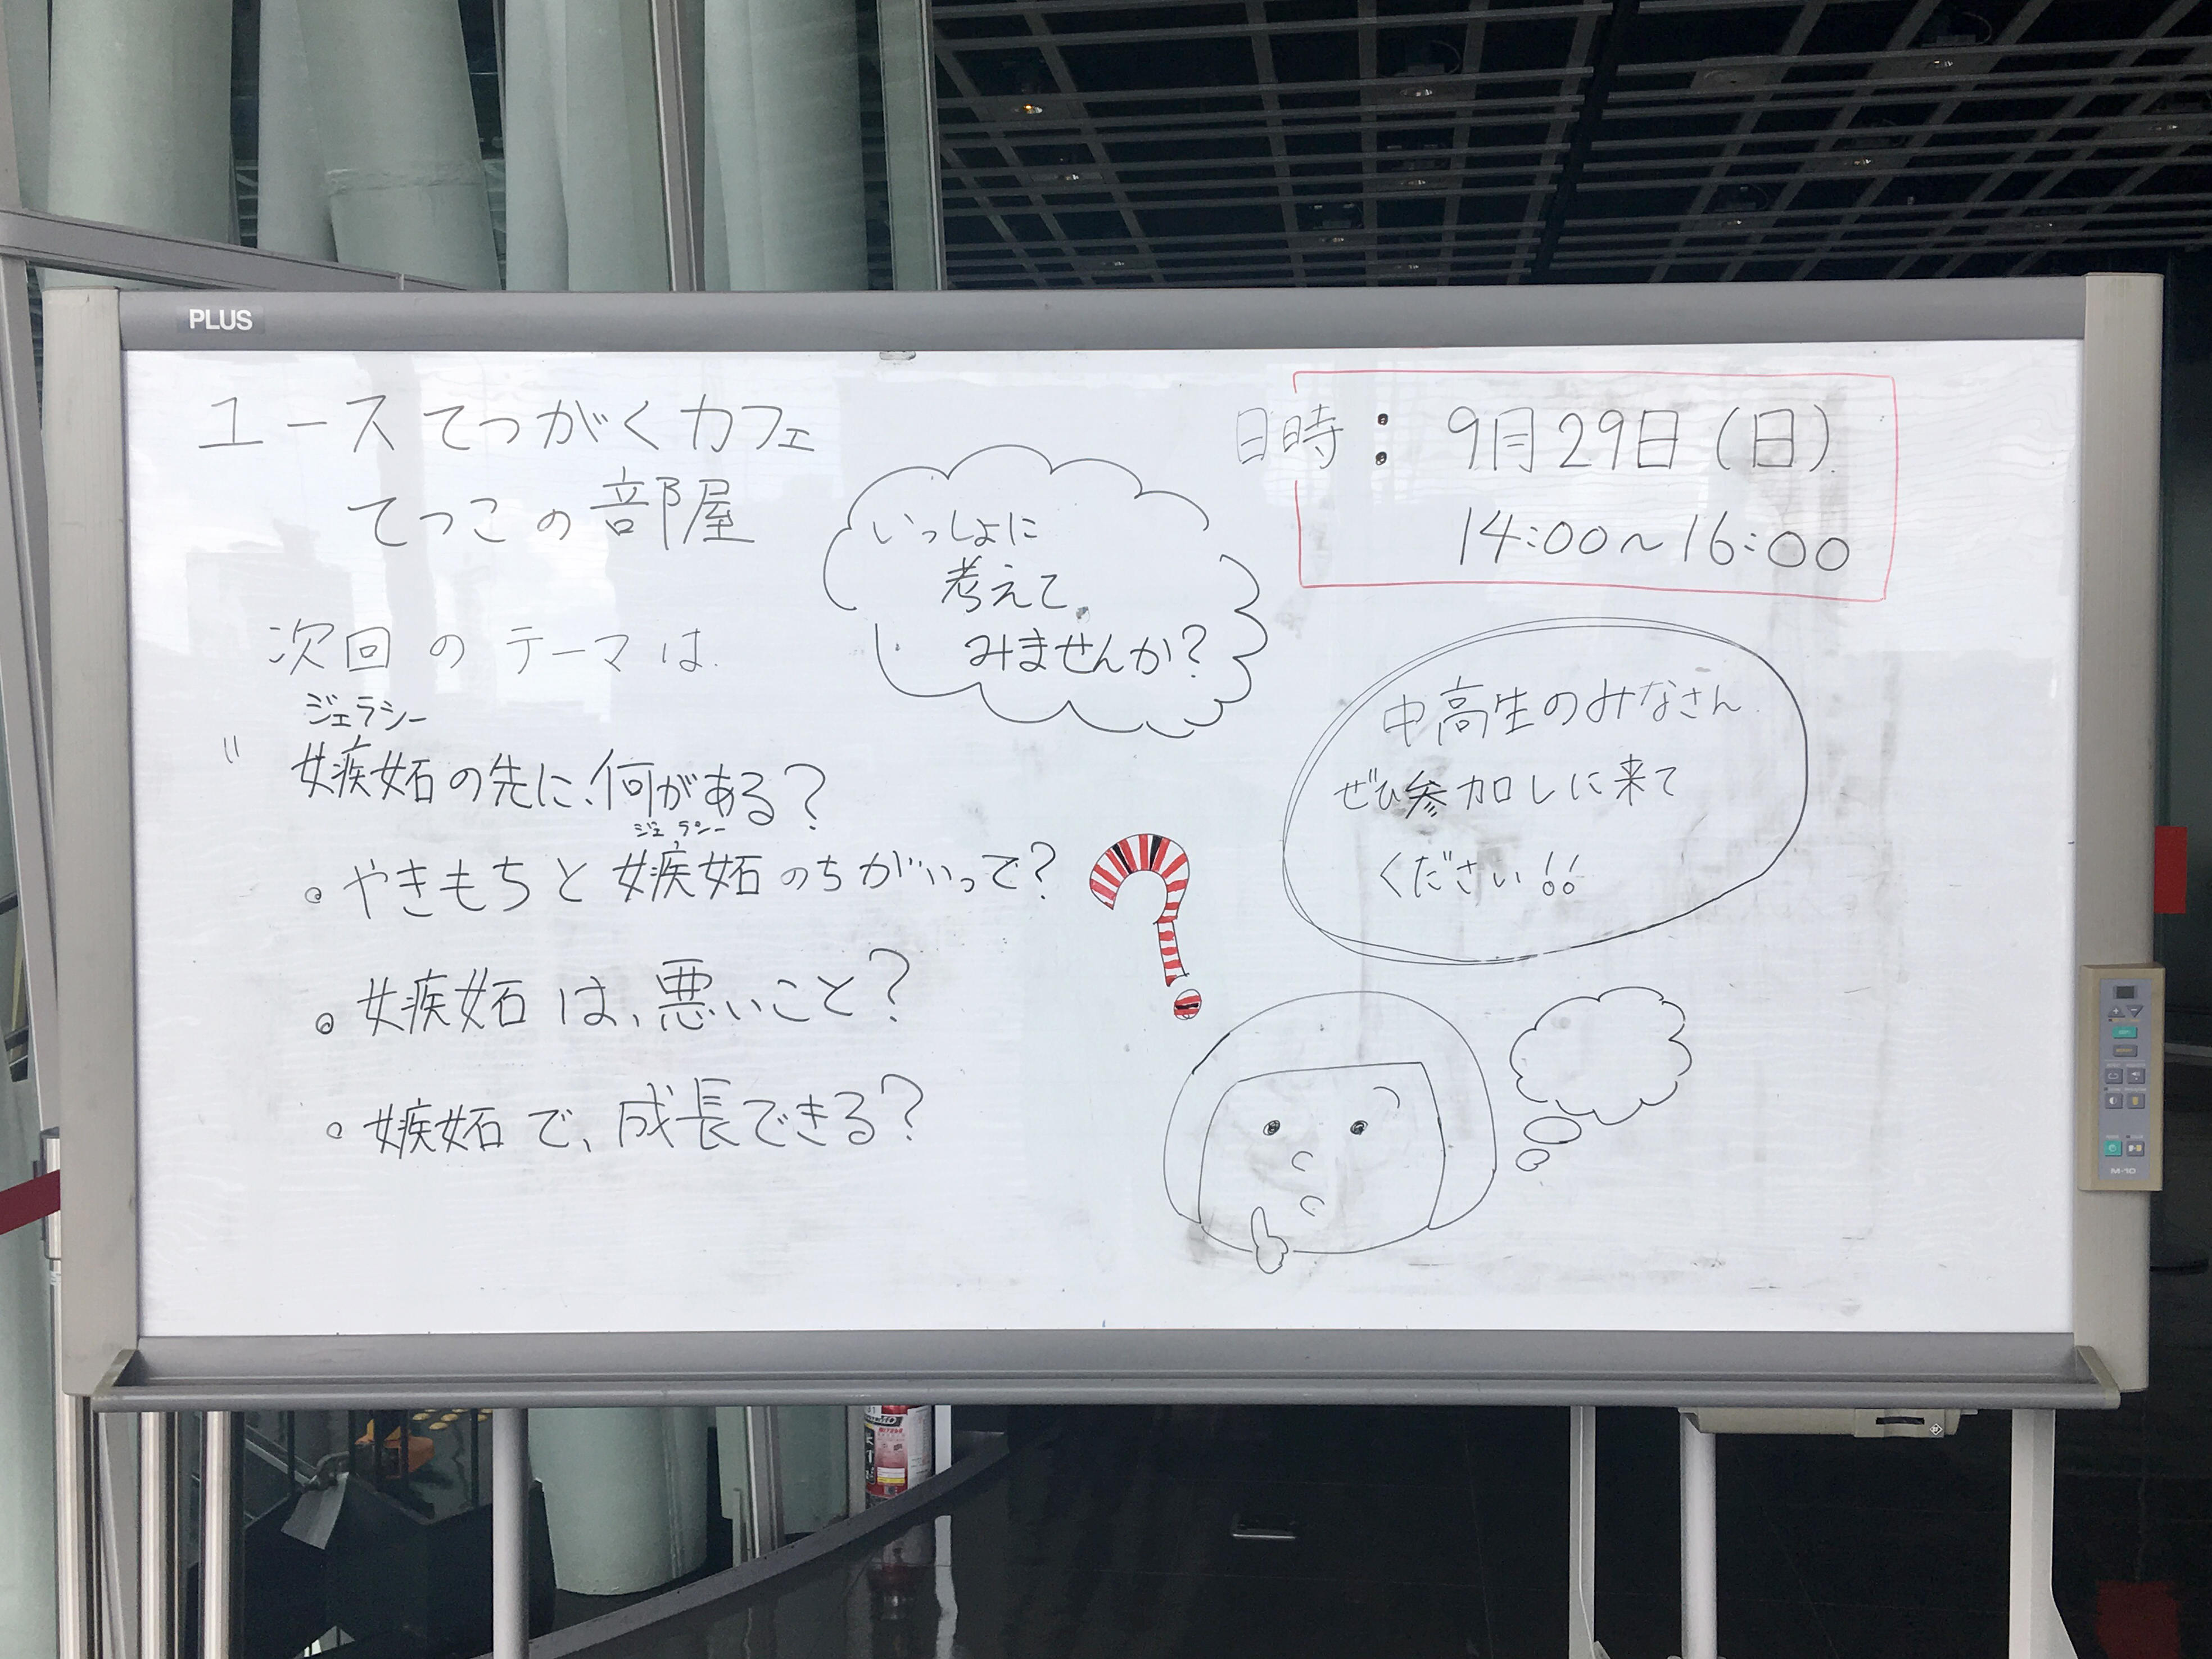 PLUS
ユース てつがくカフェ
てつこの部屋
日時：9月29日（日）
14:00～16:00
いっしょに
考えて
みませんか？
次回のテーマは
ジェラシー
〃嫉妬の先に、何がある？
ジェラシー
。やきもちと嫉妬のちがいって？
。嫉妬は、悪いこと？
。嫉妬で、成長できる？
中高生のみなさん
ぜひ参加しに来て
ください！！
M-10